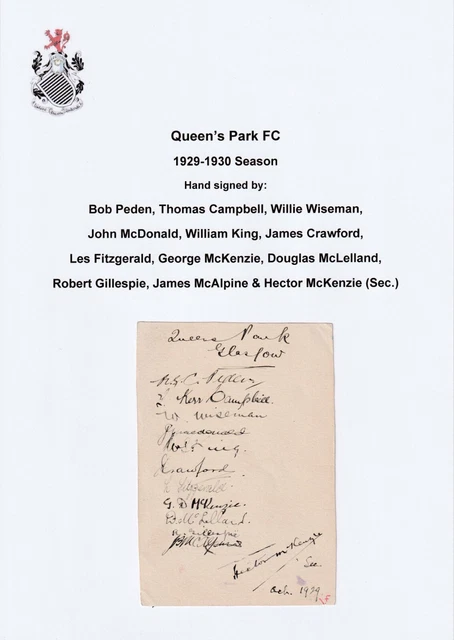 Queen's Park FC
1929-1930 Season
Hand signed by:
Bob Peden, Thomas Campbell, Willie Wiseman,
John McDonald, William King, James Crawford,
Les Fitzgerald, George McKenzie, Douglas McLelland,
Robert Gillespie, James McAlpine & Hector McKenzie (Sec.)
Queens Park
Glasgow
Kerr Campbell.
W. Wiseman
Jmacdonald
King.
Crawford.
Fitzgerald.
G. D McKenzie.
D. McLelland.
R. Gillespie
Hector McKenzie
Sec.
Oct. 1929